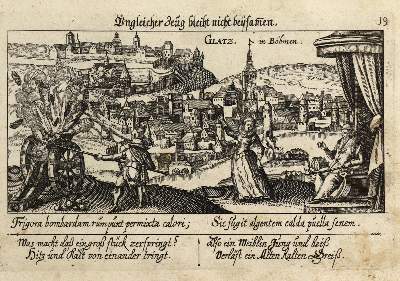 Ungleicher Zeüg bleibt nicht beysamen.
19
GLATZ. in Böhmen.
Frigora bombardam rumpunt permixta calori;
Sic fugit algentem calda puella senem.
Was macht daß ein groß stück zerspringt?
Hitz und Kält von einander tringt.
Also ein Meidlin Jung und heiß
Verläst ein Alten Kalten Greiß.